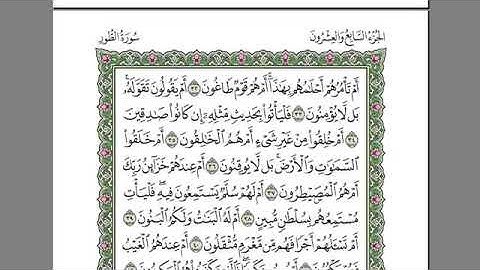 الجزء السابع والعشرون
سورة الطور
أَمْ تَأْمُرُهُمْ أَحْلَٰمُهُم بِهَٰذَآ أَمْ هُمْ قَوْمٌ طَاغُونَ ٣٢ أَمْ يَقُولُونَ تَقَوَّلَهُۥ
بَل لَّا يُؤْمِنُونَ ٣٣ فَلْيَأْتُوا۟ بِحَدِيثٍ مِّثْلِهِۦٓ إِن كَانُوا۟ صَٰدِقِينَ
٣٤ أَمْ خُلِقُوا۟ مِنْ غَيْرِ شَىْءٍ أَمْ هُمُ ٱلْخَٰلِقُونَ ٣٥ أَمْ خَلَقُوا۟
ٱلسَّمَٰوَٰتِ وَٱلْأَرْضَ بَل لَّا يُوقِنُونَ ٣٦ أَمْ عِندَهُمْ خَزَآئِنُ رَبِّكَ
أَمْ هُمُ ٱلْمُصَۣيْطِرُونَ ٣٧ أَمْ لَهُمْ سُلَّمٌ يَسْتَمِعُونَ فِيهِ فَلْيَأْتِ
مُسْتَمِعُهُم بِسُلْطَٰنٍ مُّبِينٍ ٣٨ أَمْ لَهُ ٱلْبَنَٰتُ وَلَكُمُ ٱلْبَنُونَ ٣٩
أَمْ تَسْـَٔلُهُمْ أَجْرًا فَهُم مِّن مَّغْرَمٍ مُّثْقَلُونَ ٤٠ أَمْ عِندَهُمُ ٱلْغَيْبُ